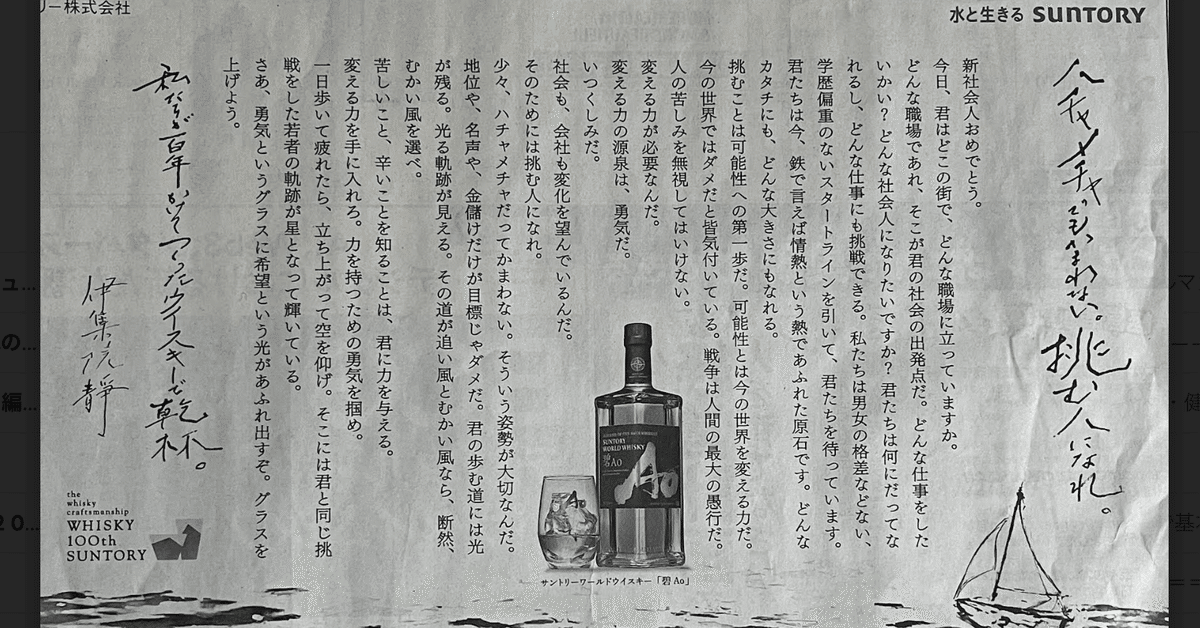 リー株式会社
水と生きる SUNTORY
ハチャメチャでもかまわない。挑む人になれ。
新社会人おめでとう。
今日、君はどこの街で、どんな職場に立っていますか。
どんな職場であれ、そこが君の社会の出発点だ。どんな仕事をした
いかい？どんな社会人になりたいですか？君たちは何にだってな
れるし、どんな仕事にも挑戦できる。私たちは男女の格差などない、
学歴偏重のないスタートラインを引いて、君たちを待っています。
君たちは今、鉄で言えば情熱という熱であふれた原石です。どんな
カタチにも、どんな大きさにもなれる。
挑むことは可能性への第一歩だ。可能性とは今の世界を変える力だ。
今の世界ではダメだと皆気付いている。戦争は人間の最大の愚行だ。
人の苦しみを無視してはいけない。
変える力が必要なんだ。
変える力の源泉は、勇気だ。
いつくしみだ。
社会も、会社も変化を望んでいるんだ。
そのためには挑む人になれ。
少々、ハチャメチャだってかまわない。そういう姿勢が大切なんだ。
地位や、名声や、金儲けだけが目標じゃダメだ。君の歩む道には光
が残る。光る軌跡が見える。その道が追い風とむかい風なら、断然、
むかい風を選べ。
苦しいこと、辛いことを知ることは、君に力を与える。
変える力を手に入れろ。力を持つための勇気を掴め。
一日歩いて疲れたら、立ち上がって空を仰げ。そこには君と同じ挑
戦をした若者の軌跡が星となって輝いている。
さあ、勇気というグラスに希望という光があふれ出すぞ。グラスを
上げよう。
私たちが百年かけてつくったウイスキーで乾杯。
伊集院静
SUNTORY
WORLD WHISKY
碧Ao
Ao
Ao
サントリーワールドウイスキー「碧Ao」
the
whisky
craftsmanship
WHISKY
100th
SUNTORY